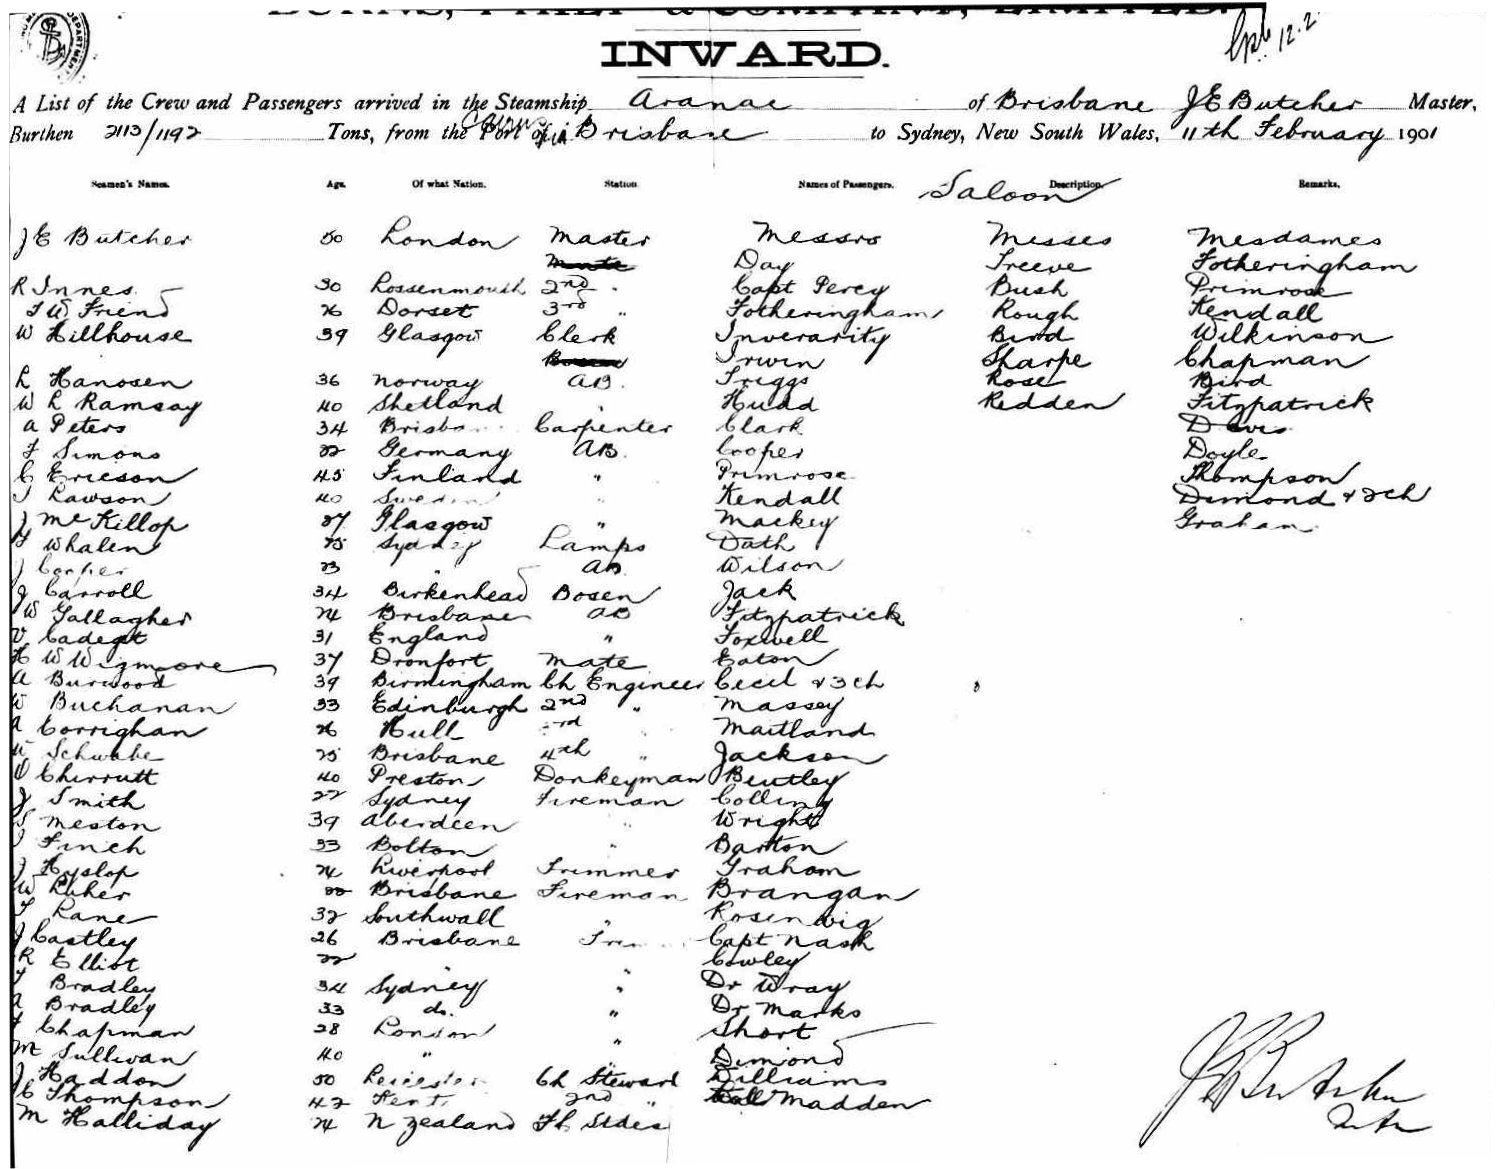 BURNS, PHILP & COMPANY, LIMITED.
12.2
INWARD.
A List of the Crew and Passengers arrived in the Steamship Aranac of Brisbane J E Butcher Master,
Burthen 2113/1192 Tons, from the Port of Cairns via Brisbane to Sydney, New South Wales, 11th February 1901
Seamen's Names. Age. Of what Nation. Station. Names of Passengers. Saloon Description. Remarks.
J E Butcher 50 London Master Messrs Misses Mesdames
Mate Day Treeve Fotheringham
R Innes 30 Lossenmouth 2nd " Capt Percy Bush Primrose
T W Friend 26 Dorset 3rd " Fotheringham Rough Kendall
W Hillhouse 39 Glasgow Clerk Inverarity Bird Wilkinson
Bosen Irwin Sharpe Chapman
L Hanosen 36 Norway AB. Triggs Rose Bird
W L Ramsay 40 Shetland " Hudd Redden Fitzpatrick
A Peters 34 Brisba Carpenter Clark Davis
F Simons 22 Germany AB. Cooper Doyle
C Ericson 45 Finland " Primrose Thompson
J Lawson 40 Sweden Kendall Dimond & 2ch
J McKillop 27 Glasgow " Mackey Graham
T Whalen 25 Sydney Lamps Dath
J Cooper 23 " AB Wilson
J Carroll 34 Birkenhead Bosen Jack
W Gallagher 24 Brisbane AB Fitzpatrick
V Cadegt 31 England " Foxwell
H W Wigmoore 37 Dronfort Mate Eaton
A Burwood 39 Birmingham Ch Engineer Cecil & 3ch
W Buchanan 33 Edinburgh 2nd " Massey
A Corrighan 26 Hull 3rd Maitland
W Schwabe 25 Brisbane 4th " Jackson
W Chirrutt 40 Preston Donkeyman Bentley
J Smith 22 Sydney Fireman Colling
S Meston 39 Aberdeen " Wright
J Finch 33 Bolton " Barton
J Hyslop 24 Liverpool Trimmer Graham
W Luher 22 Brisbane Fireman Brangan
T Lane 32 Southwall " Rosenwig
J Castley 26 Brisbane Trim Capt Nash
R Elliot 22 " " Cowley
T Bradley 34 Sydney " Dr Wray
A Bradley 33 do. " Dr Marks
F Chapman 28 London " Short
M Sullivan 40 " Dimond
J Haddon 50 Leicester Ch Steward Williams
C Thompson 42 Kent 2nd " Madden
M Halliday 24 N Zealand Fh Stdes
J E Butcher